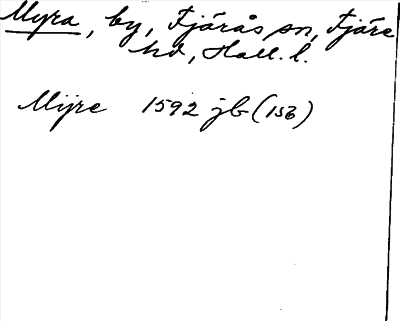 Myra, by, Fjärås sn, Fjäre
hd, Hall. l.
Mijre 1592 jb (156)